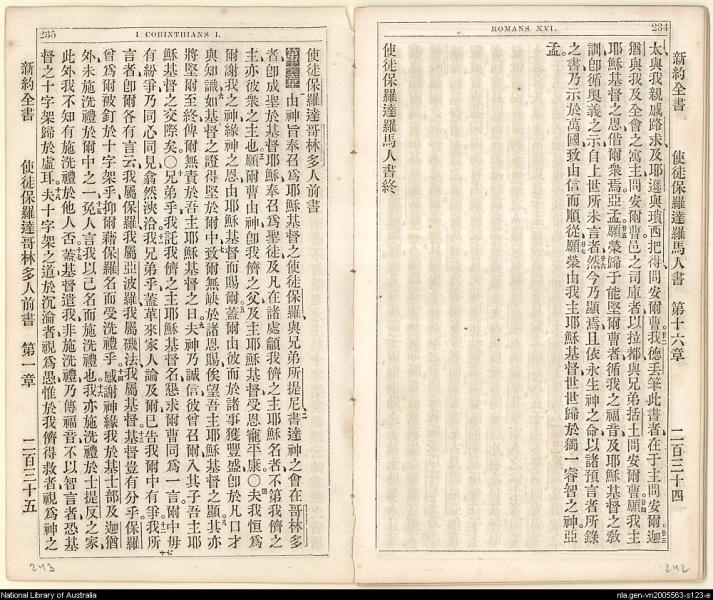 ROMANS XVI.
234
新約全書 使徒保羅達羅馬人書 第十六章 二百三十四
太與我親戚路求及耶遜與瑣西把得問安爾曹我德丢筆此書者在于主問安爾迦
猶與我及全會之寓主問安爾曹邑之司庫者以拉都與兄弟括土問安爾曹願我主
耶穌基督之恩偕爾衆焉亞孟願榮歸于能堅爾曹者循我之福音及耶穌基督之敎
訓卽循奧義之示自上世所未言者然今乃顯焉且依永生神之命以諸預言者所錄
之書乃示於萬國致由信而順從願榮由我主耶穌基督世世歸於獨一睿智之神亞
孟
使徒保羅達羅馬人書終
242
I CORINTHIANS I.
235
使徒保羅達哥林多人前書
第一章 由神旨奉召爲耶穌基督之使徒保羅與兄弟所提尼書達神之會在哥林多
者卽成聖於基督耶穌奉召爲聖徒及凡在諸處籲我儕之主耶穌名者不第我儕之
主亦彼衆之主也願爾曹由神卽我儕之父及主耶穌基督受恩寵平康〇夫我恒爲
爾謝我之神緣神之恩由耶穌基督而賜爾蓋爾由彼而於諸事獲豐盛卽於凡口才
與知識如基督之證得堅於爾中致爾無缺於諸恩賜俟望吾主耶穌基督之顯其亦
將堅爾至終俾爾無責於吾主耶穌基督之日夫神乃誠信彼曾召爾入其子吾主耶
穌基督之交際矣〇兄弟乎我託我儕之主耶穌基督名懇求爾曹同爲一言爾中毋
有紛爭乃同心同見翕然浹洽我兄弟乎蓋革來家人論及爾已告我爾中有爭我所
言者卽爾各有言云我屬保羅我屬亞波羅我屬磯法我屬基督基督豈有分乎保羅
曾爲爾被釘於十字架乎抑爾藉保羅名而受洗禮乎感謝神緣我於基士部及迦猶
外未施洗禮於爾中之一免人言我以己名而施洗禮也我亦施洗禮於士提反之家
此外我不知有施洗禮於他人否蓋基督遣我非施洗禮乃傳福音不以智言者恐基
督之十字架歸於虛耳夫十字架之道於沉淪者視爲愚惟於我儕得救者視爲神之
新約全書 使徒保羅達哥林多人前書 第一章 二百三十五
243
National Library of Australia
nla.gen-vn2005563-s123-e